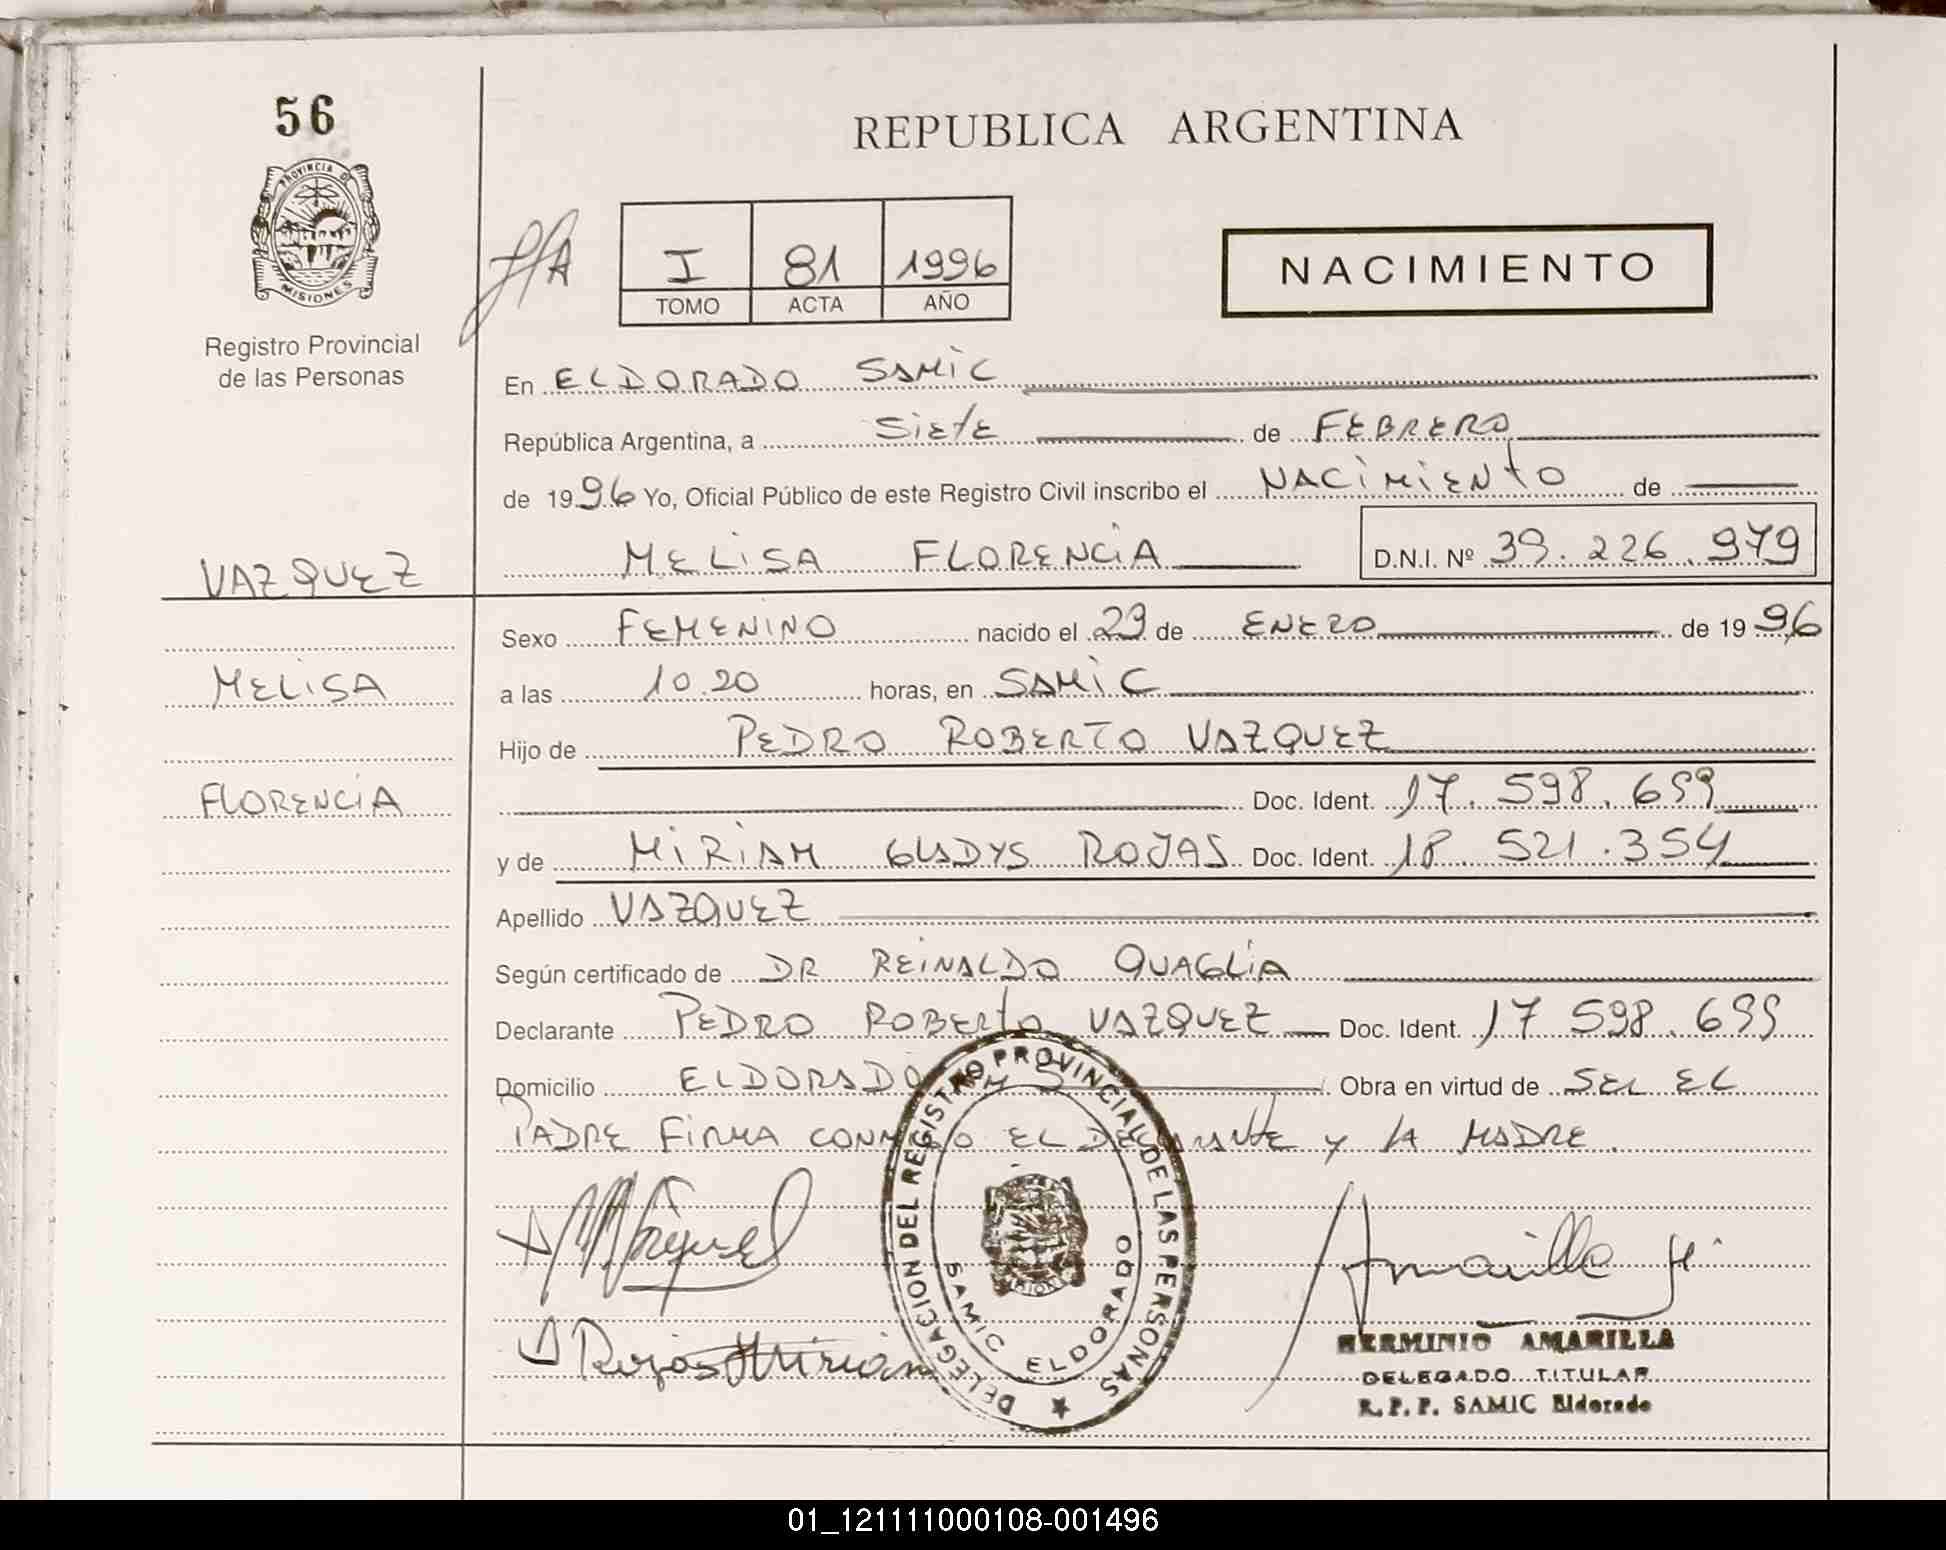 56
PROVINCIA DE
MISIONES
Registro Provincial
de las Personas
REPUBLICA ARGENTINA
I 81 1996
TOMO ACTA AÑO
NACIMIENTO
En ELDORADO SAMIC
República Argentina, a Siete de FEBRERO
de 1996 Yo, Oficial Público de este Registro Civil inscribo el NACIMIENTO de
VAZQUEZ
MELISA FLORENCIA D.N.I. Nº 39.226.979
Sexo FEMENINO nacido el 29 de ENERO de 1996
MELISA
a las 10.20 horas, en SAMIC
Hijo de PEDRO ROBERTO VAZQUEZ
FLORENCIA
Doc. Ident. 17.598.699
y de MIRIAM GLADYS ROJAS Doc. Ident. 18.521.354
Apellido VAZQUEZ
Según certificado de DR REINALDO QUAGLIA
Declarante PEDRO ROBERTO VAZQUEZ Doc. Ident. 17 598.699
Domicilio ELDORADO Obra en virtud de SER EL
PADRE FIRMA CONMIGO EL DECLARANTE y LA MADRE.
DELEGACION DEL REGISTRO PROVINCIAL DE LAS PERSONAS
SAMIC ELDORADO
Rojas Miriam
Amarilla H.
HERMINIO AMARILLA
DELEGADO TITULAR
R.P.P. SAMIC Eldorado
01_121111000108-001496